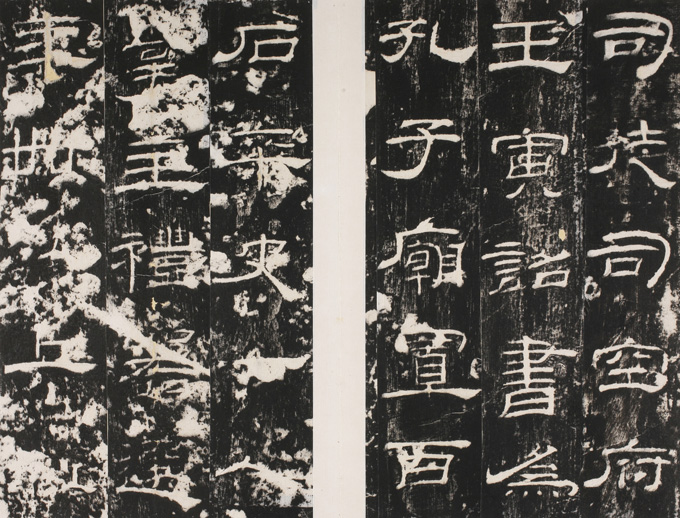 司徒司空府
壬寅詔書為
孔子廟置百
石卒史一人
掌主禮器選
年卌以上